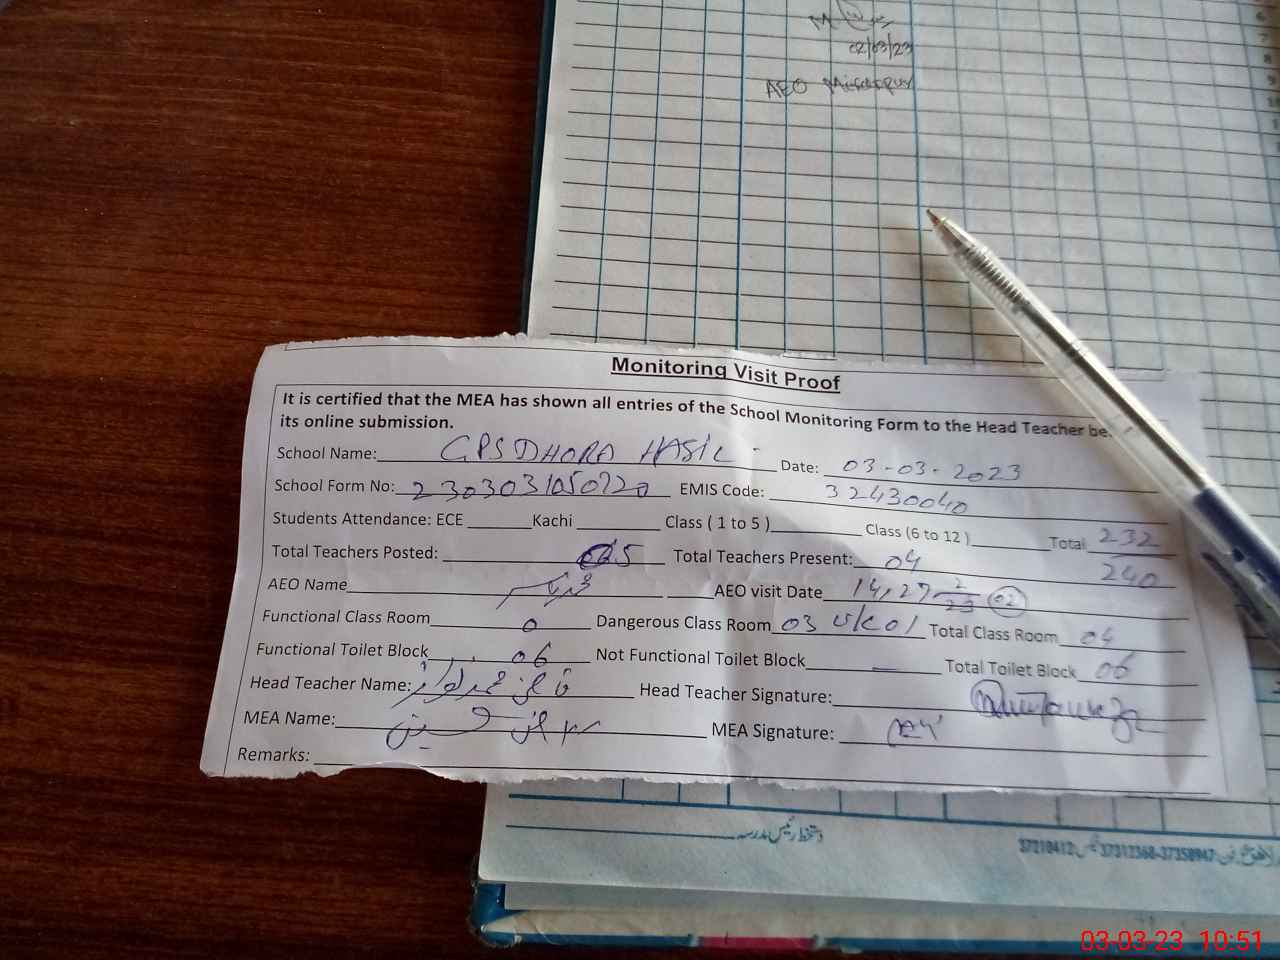 02/03/23
AEO
Monitoring Visit Proof
It is certified that the MEA has shown all entries of the School Monitoring Form to the Head Teacher be
its online submission.
School Name: GPS DHORA HASIL Date: 03-03-2023
School Form No: 2303031050720 EMIS Code: 32430040
Students Attendance: ECE Kachi Class ( 1 to 5 ) Class (6 to 12 ) Total 232
240
Total Teachers Posted: 05 Total Teachers Present: 04
AEO Name AEO visit Date 14, 27 2/23 02
Functional Class Room 0 Dangerous Class Room 03 Total Class Room 04
Functional Toilet Block 06 Not Functional Toilet Block — Total Toilet Block 06
Head Teacher Name: Head Teacher Signature:
MEA Name: MEA Signature:
Remarks:
دستخط رئیس مدرسہ
37210412 37312368-37350947
03-03-23 10:51